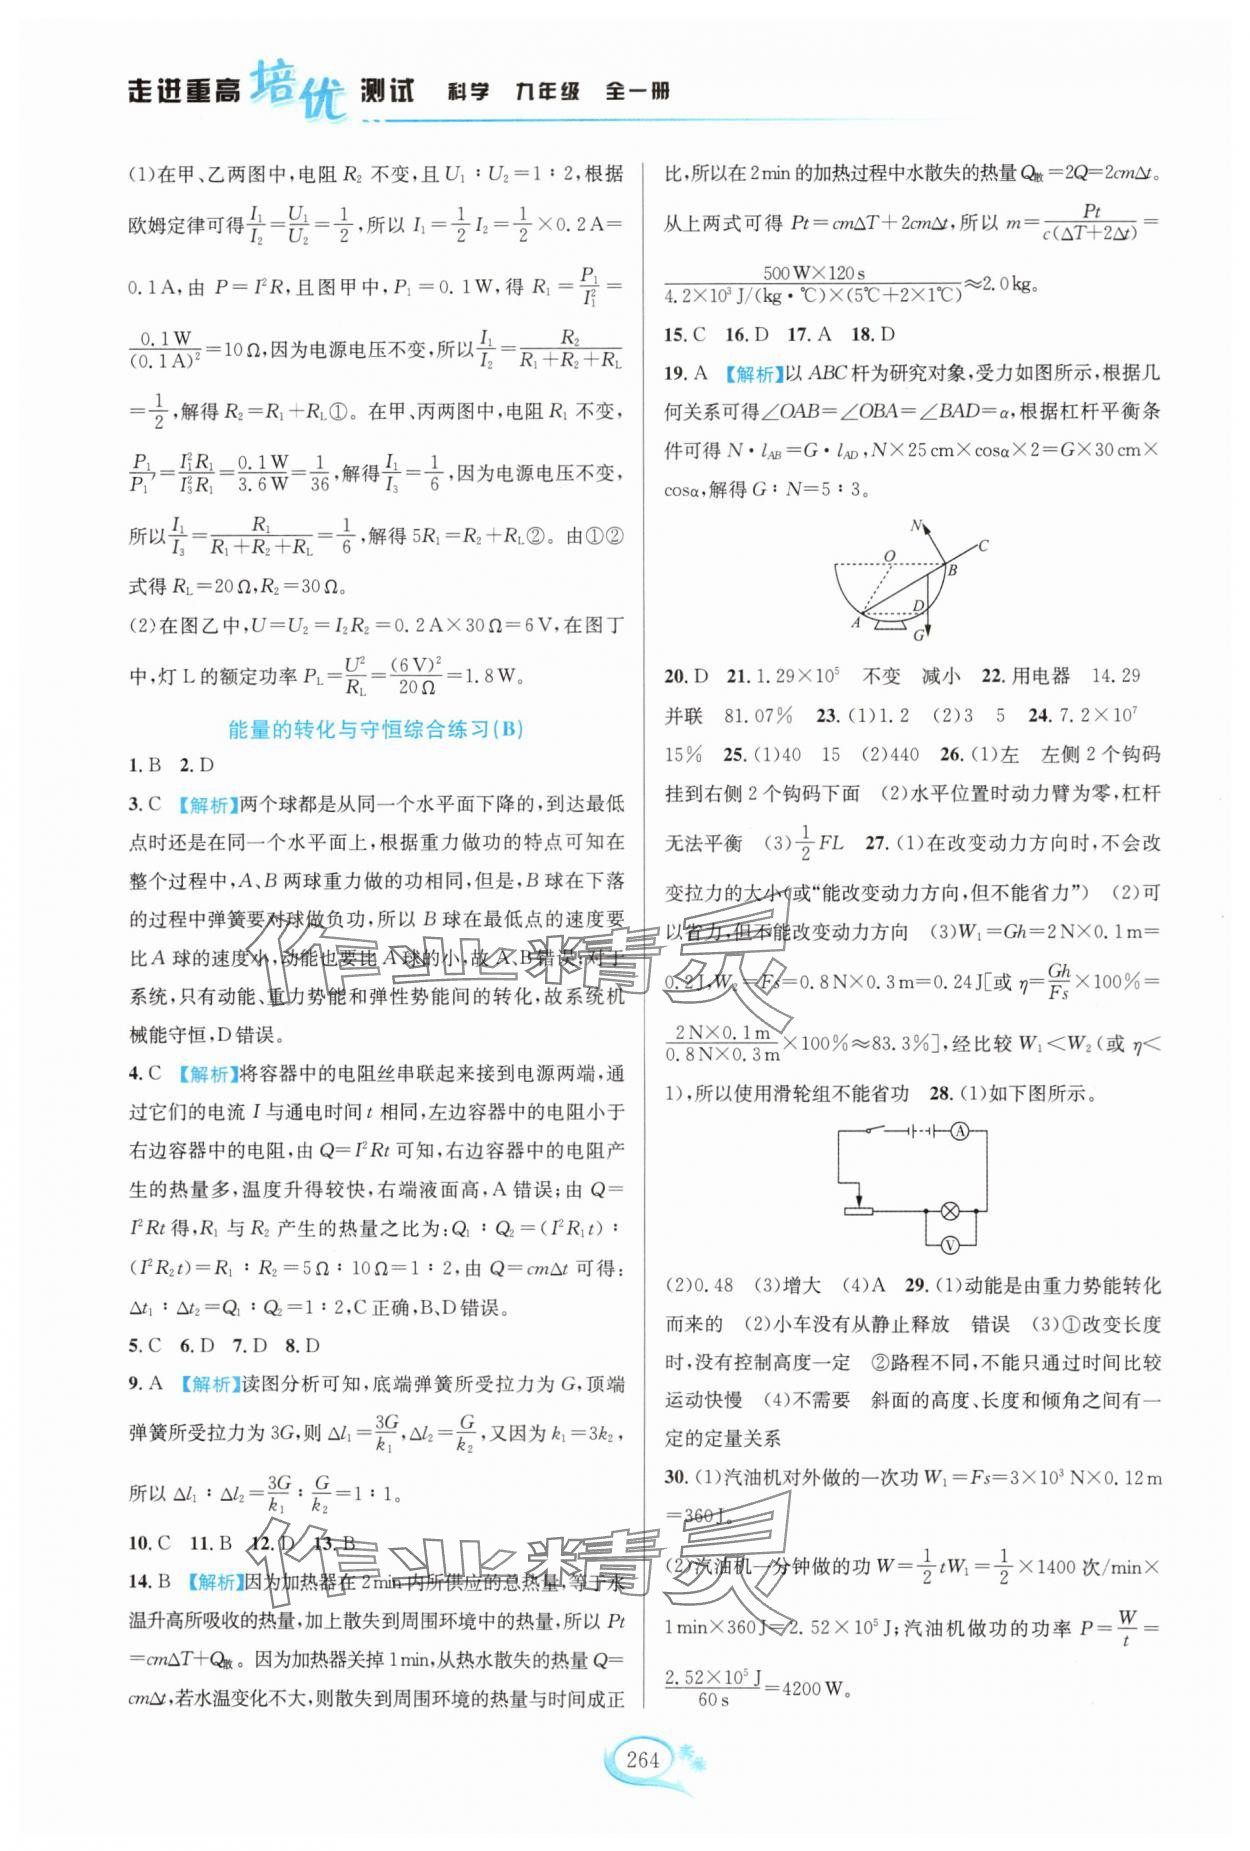 走进重高培优测试 科学 九年级 全一册
(1)在甲、乙两图中,电阻 R₂ 不变,且 U₁∶U₂=1∶2,根据
欧姆定律可得 I₁/I₂=U₁/U₂=1/2,所以 I₁=1/2 I₂=1/2×0.2A=
0.1A,由 P=I²R,且图甲中,P₁=0.1W,得 R₁=P₁/I₁²=
0.1W/(0.1A)²=10Ω,因为电源电压不变,所以 I₁/I₂=R₂/(R₁+R₂+RL)
=1/2,解得 R₂=R₁+RL①。在甲、丙两图中,电阻 R₁ 不变,
P₁/P₁'=I₁²R₁/I₃²R₁=0.1W/3.6W=1/36,解得 I₁/I₃=1/6,因为电源电压不变,
所以 I₁/I₃=R₁/(R₁+R₂+RL)=1/6,解得 5R₁=R₂+RL②。由①②
式得 RL=20Ω,R₂=30Ω。
(2)在图乙中,U=U₂=I₂R₂=0.2A×30Ω=6V,在图丁
中,灯 L 的额定功率 PL=U²/RL=(6V)²/20Ω=1.8W。
能量的转化与守恒综合练习(B)
1. B 2. D
3. C 【解析】两个球都是从同一个水平面下降的,到达最低
点时还是在同一个水平面上,根据重力做功的特点可知在
整个过程中,A、B 两球重力做的功相同,但是,B 球在下落
的过程中弹簧要对球做负功,所以 B 球在最低点的速度要
比 A 球的速度小,动能也要比 A 球的小,故 A、B 错误;对于
系统,只有动能、重力势能和弹性势能间的转化,故系统机
械能守恒,D 错误。
4. C 【解析】将容器中的电阻丝串联起来接到电源两端,通
过它们的电流 I 与通电时间 t 相同,左边容器中的电阻小于
右边容器中的电阻,由 Q=I²Rt 可知,右边容器中的电阻产
生的热量多,温度升得较快,右端液面高,A 错误;由 Q=
I²Rt 得,R₁ 与 R₂ 产生的热量之比为:Q₁∶Q₂=(I²R₁t)∶
(I²R₂t)=R₁∶R₂=5Ω∶10Ω=1∶2,由 Q=cmΔt 可得:
Δt₁∶Δt₂=Q₁∶Q₂=1∶2,C 正确,B、D 错误。
5. C 6. D 7. D 8. D
9. A 【解析】读图分析可知,底端弹簧所受拉力为 G,顶端
弹簧所受拉力为 3G,则 Δl₁=3G/k₁,Δl₂=G/k₂,又因为 k₁=3k₂,
所以 Δl₁∶Δl₂=3G/k₁∶G/k₂=1∶1。
10. C 11. B 12. D 13. B
14. B 【解析】因为加热器在 2min 内所供应的总热量,等于水
温升高所吸收的热量,加上散失到周围环境中的热量,所以 Pt
=cmΔT+Q散。因为加热器关掉 1min,从热水散失的热量 Q=
cmΔt,若水温变化不大,则散失到周围环境的热量与时间成正
比,所以在 2min 的加热过程中水散失的热量 Q散=2Q=2cmΔt。
从上两式可得 Pt=cmΔT+2cmΔt,所以 m=Pt/c(ΔT+2Δt)=
500W×120s/4.2×10³J/(kg·℃)×(5℃+2×1℃)≈2.0kg。
15. C 16. D 17. A 18. D
19. A 【解析】以 ABC 杆为研究对象,受力如图所示,根据几
何关系可得∠OAB=∠OBA=∠BAD=α,根据杠杆平衡条
件可得 N·lAB=G·lAD,N×25cm×cosα×2=G×30cm×
cosα,解得 G∶N=5∶3。
N
C
O
B
A
D
G
20. D 21. 1.29×10⁵ 不变 减小 22. 用电器 14.29
并联 81.07% 23. (1)1.2 (2)3 5 24. 7.2×10⁷
15% 25. (1)40 15 (2)440 26. (1)左 左侧 2 个钩码
挂到右侧 2 个钩码下面 (2)水平位置时动力臂为零,杠杆
无法平衡 (3)1/2 FL 27. (1)在改变动力方向时,不会改
变拉力的大小(或“能改变动力方向,但不能省力”) (2)可
以省力,但不能改变动力方向 (3)W₁=Gh=2N×0.1m=
0.2J,W₂=Fs=0.8N×0.3m=0.24J[或 η=Gh/Fs×100%=
2N×0.1m/0.8N×0.3m×100%≈83.3%],经比较 W₁<W₂(或 η<
1),所以使用滑轮组不能省功 28. (1)如下图所示。
A
V
(2)0.48 (3)增大 (4)A 29. (1)动能是由重力势能转化
而来的 (2)小车没有从静止释放 错误 (3)①改变长度
时,没有控制高度一定 ②路程不同,不能只通过时间比较
运动快慢 (4)不需要 斜面的高度、长度和倾角之间有一
定的定量关系
30. (1)汽油机对外做的一次功 W₁=Fs=3×10³N×0.12m
=360J。
(2)汽油机一分钟做的功 W=1/2 tW₁=1/2×1400 次/min×
1min×360J=2.52×10⁵J;汽油机做功的功率 P=W/t=
2.52×10⁵J/60s=4200W。
264
作业精灵
作业精灵